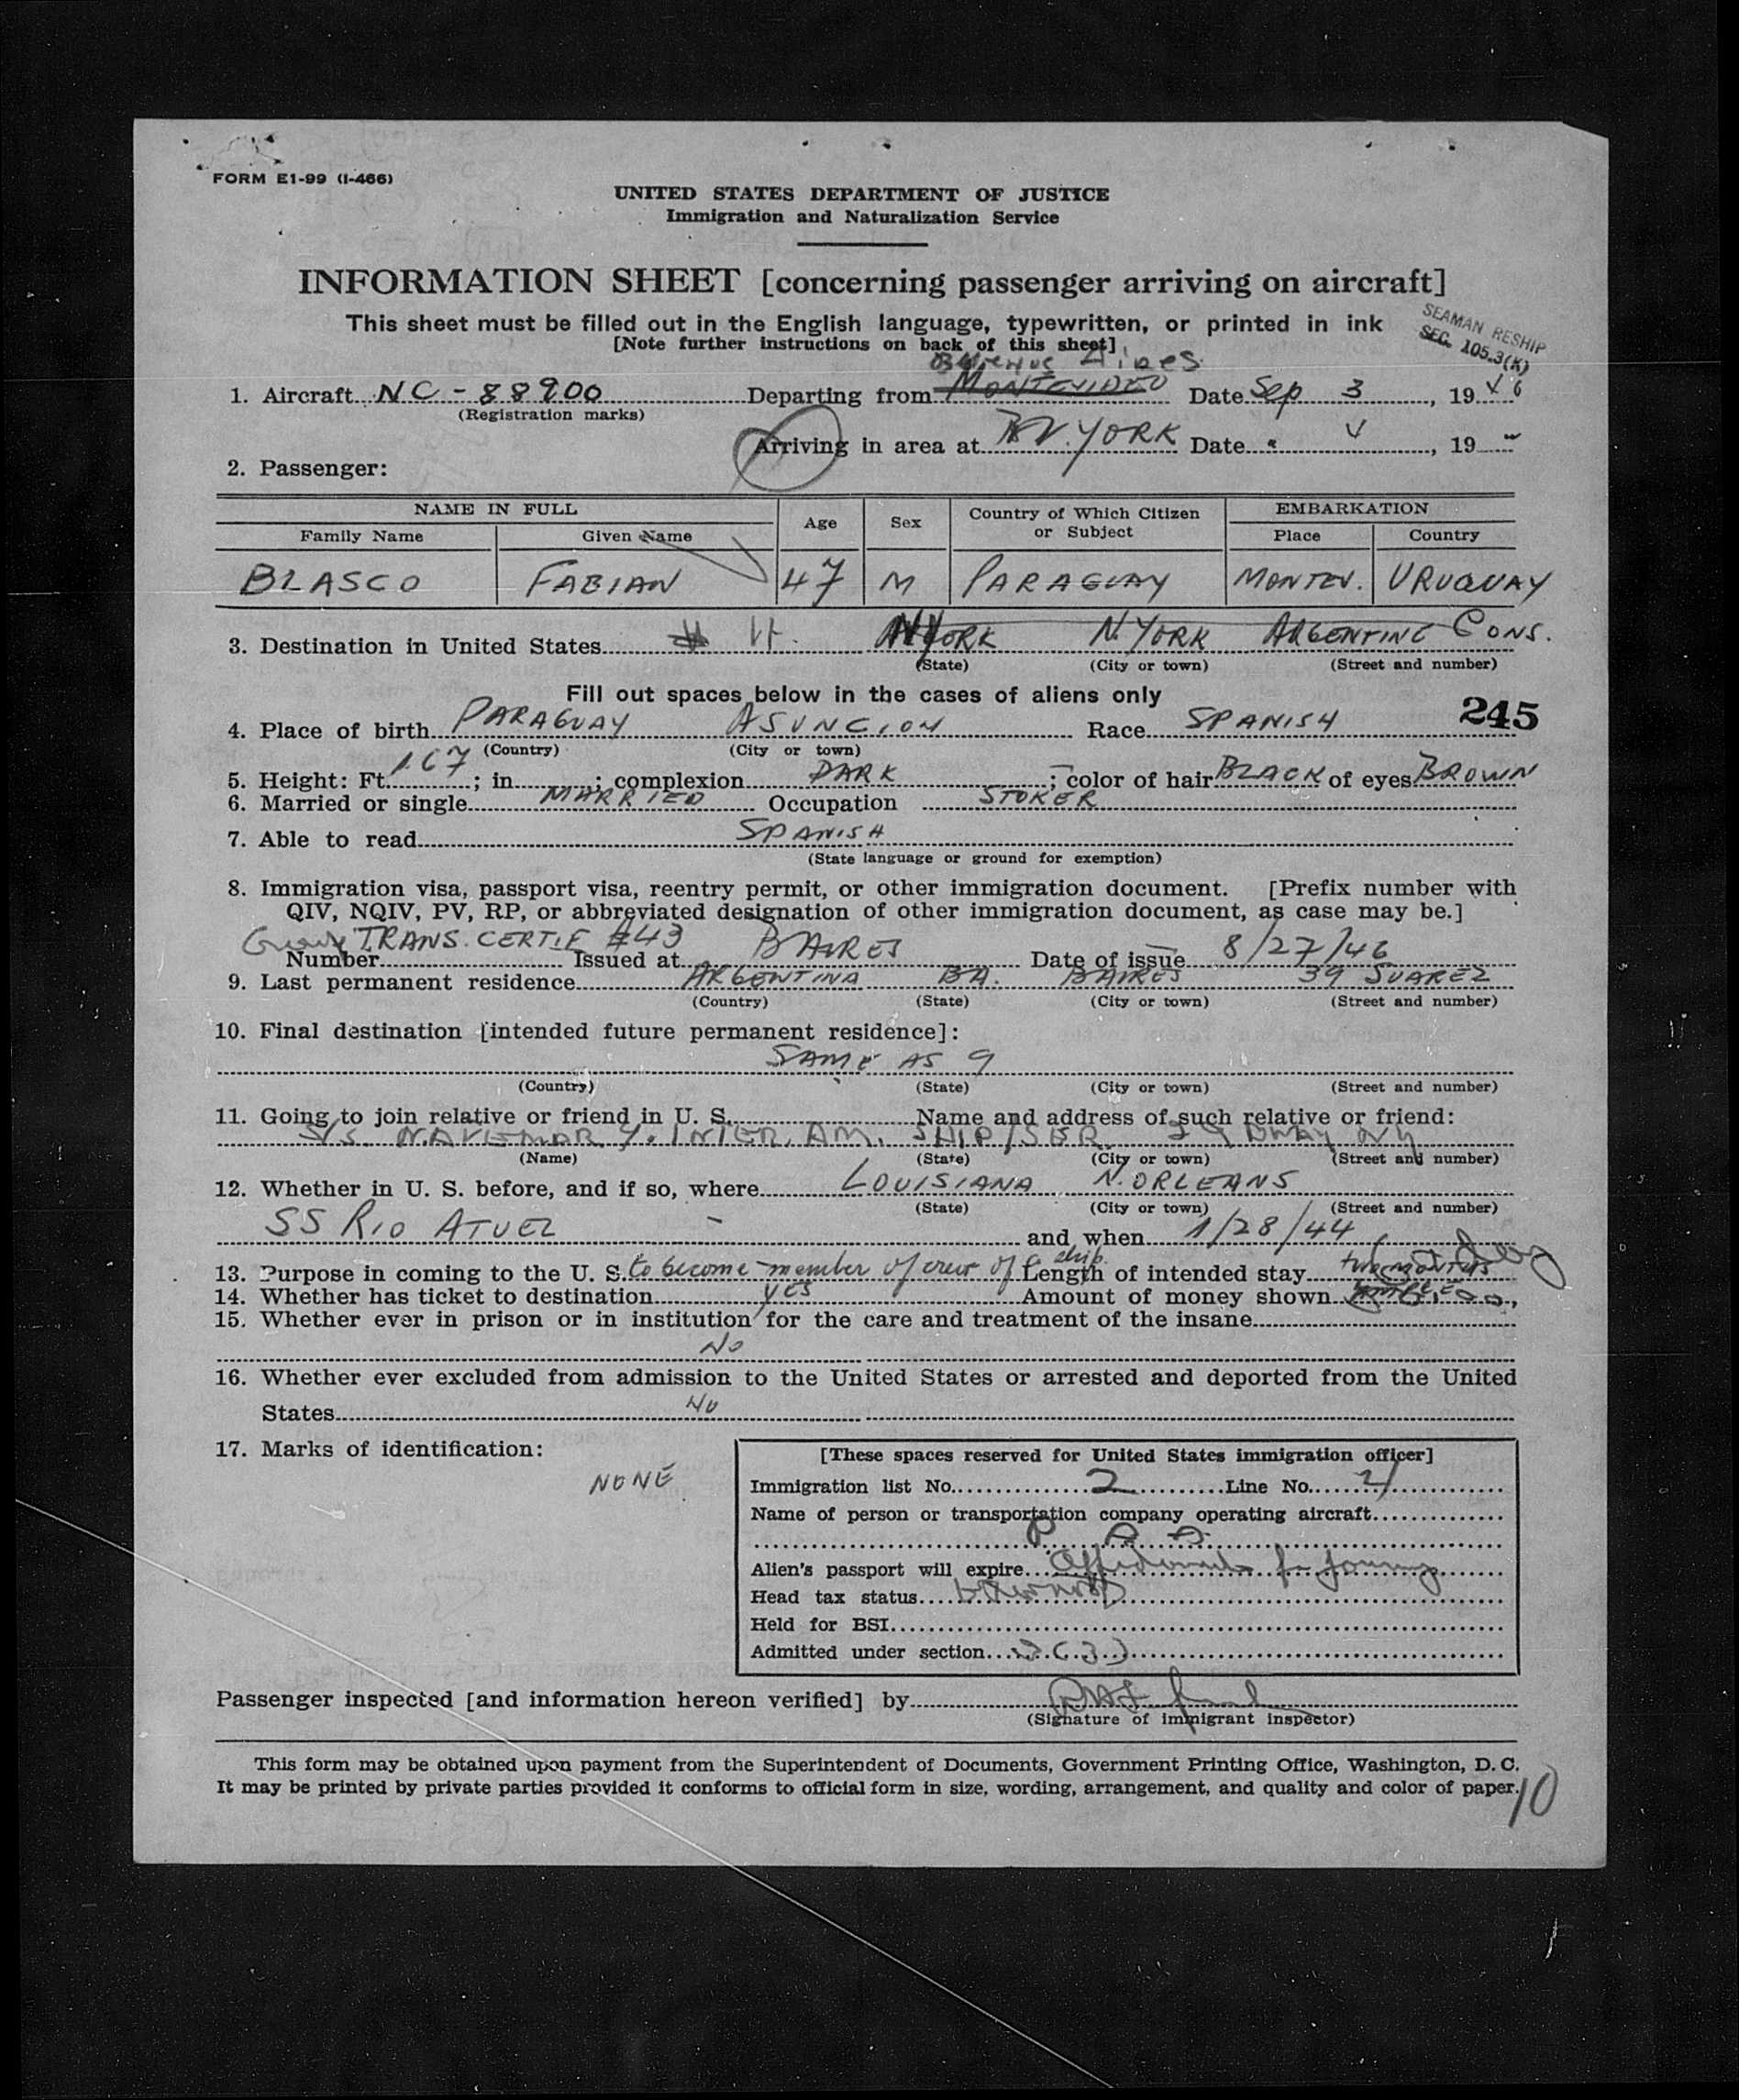 FORM E1-99 (I-466)
UNITED STATES DEPARTMENT OF JUSTICE
Immigration and Naturalization Service
INFORMATION SHEET [concerning passenger arriving on aircraft]
This sheet must be filled out in the English language, typewritten, or printed in ink
[Note further instructions on back of this sheet]
SEAMAN RESHIP
SEC. 105.3(K)
Buenos Aires
1. Aircraft NC-88900 Departing from MONTEVIDEO Date Sep 3, 1946
(Registration marks)
Arriving in area at N.YORK Date " 4, 19 "
2. Passenger:
NAME IN FULL Age Sex Country of Which Citizen or Subject EMBARKATION
Family Name Given Name Place Country
BLASCO FABIAN 47 M PARAGUAY MONTEV. URUGUAY
3. Destination in United States N.YORK N.YORK ARGENTINE CONS.
(State) (City or town) (Street and number)
Fill out spaces below in the cases of aliens only
245
4. Place of birth PARAGUAY ASUNCION Race SPANISH
(Country) (City or town)
5. Height: Ft. 1.67; in. ; complexion DARK; color of hair BLACK of eyes BROWN
6. Married or single MARRIED Occupation STOKER
7. Able to read SPANISH
(State language or ground for exemption)
8. Immigration visa, passport visa, reentry permit, or other immigration document. [Prefix number with
QIV, NQIV, PV, RP, or abbreviated designation of other immigration document, as case may be.]
TRANS. CERTIF #43 BAIRES 8/27/46
Number Issued at Date of issue
9. Last permanent residence ARGENTINA BA. BAIRES 39 SUAREZ
(Country) (State) (City or town) (Street and number)
10. Final destination [intended future permanent residence]:
SAME AS 9
(Country) (State) (City or town) (Street and number)
11. Going to join relative or friend in U. S. Name and address of such relative or friend:
S/S. NAVEMAR INTER. AM. SHIP/SER. 29 BWAY NY
(Name) (State) (City or town) (Street and number)
12. Whether in U. S. before, and if so, where LOUISIANA N.ORLEANS
(State) (City or town) (Street and number)
SS RIO ATUEL - and when 1/28/44
13. Purpose in coming to the U. S. to become member of crew of a ship. Length of intended stay
14. Whether has ticket to destination YES Amount of money shown
15. Whether ever in prison or in institution for the care and treatment of the insane
No
16. Whether ever excluded from admission to the United States or arrested and deported from the United
States No
17. Marks of identification:
NONE
[These spaces reserved for United States immigration officer]
Immigration list No. 2 Line No. 4
Name of person or transportation company operating aircraft
P. A. A.
Alien's passport will expire
Head tax status
Held for BSI
Admitted under section 3(3)
Passenger inspected [and information hereon verified] by
(Signature of immigrant inspector)
This form may be obtained upon payment from the Superintendent of Documents, Government Printing Office, Washington, D. C.
It may be printed by private parties provided it conforms to official form in size, wording, arrangement, and quality and color of paper.
10